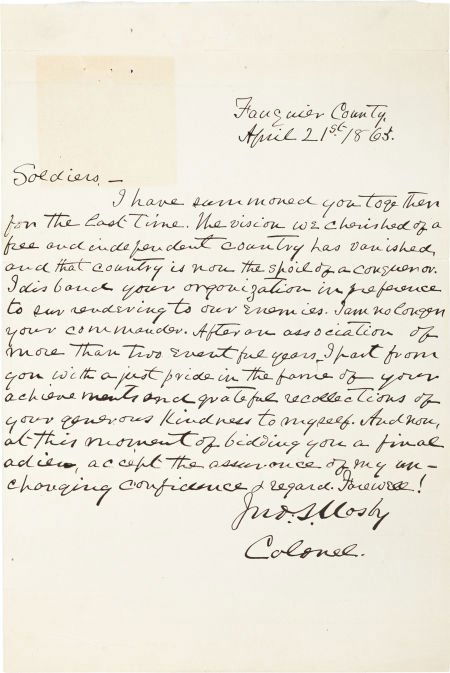 Fauquier County.
April 21st 1865.
Soldiers —
I have summoned you together
for the last time. The vision we cherished of a
free and independent country has vanished,
and that country is now the spoil of a conqueror.
I disband your organization in preference
to surrendering to our enemies. I am no longer
your commander. After an association of
more than two eventful years, I part from
you with a just pride in the fame of your
achievements and grateful recollections of
your generous kindness to myself. And now,
at this moment of bidding you a final
adieu, accept the assurance of my un-
changing confidence & regard. Farewell!
Jno. S. Mosby
Colonel.